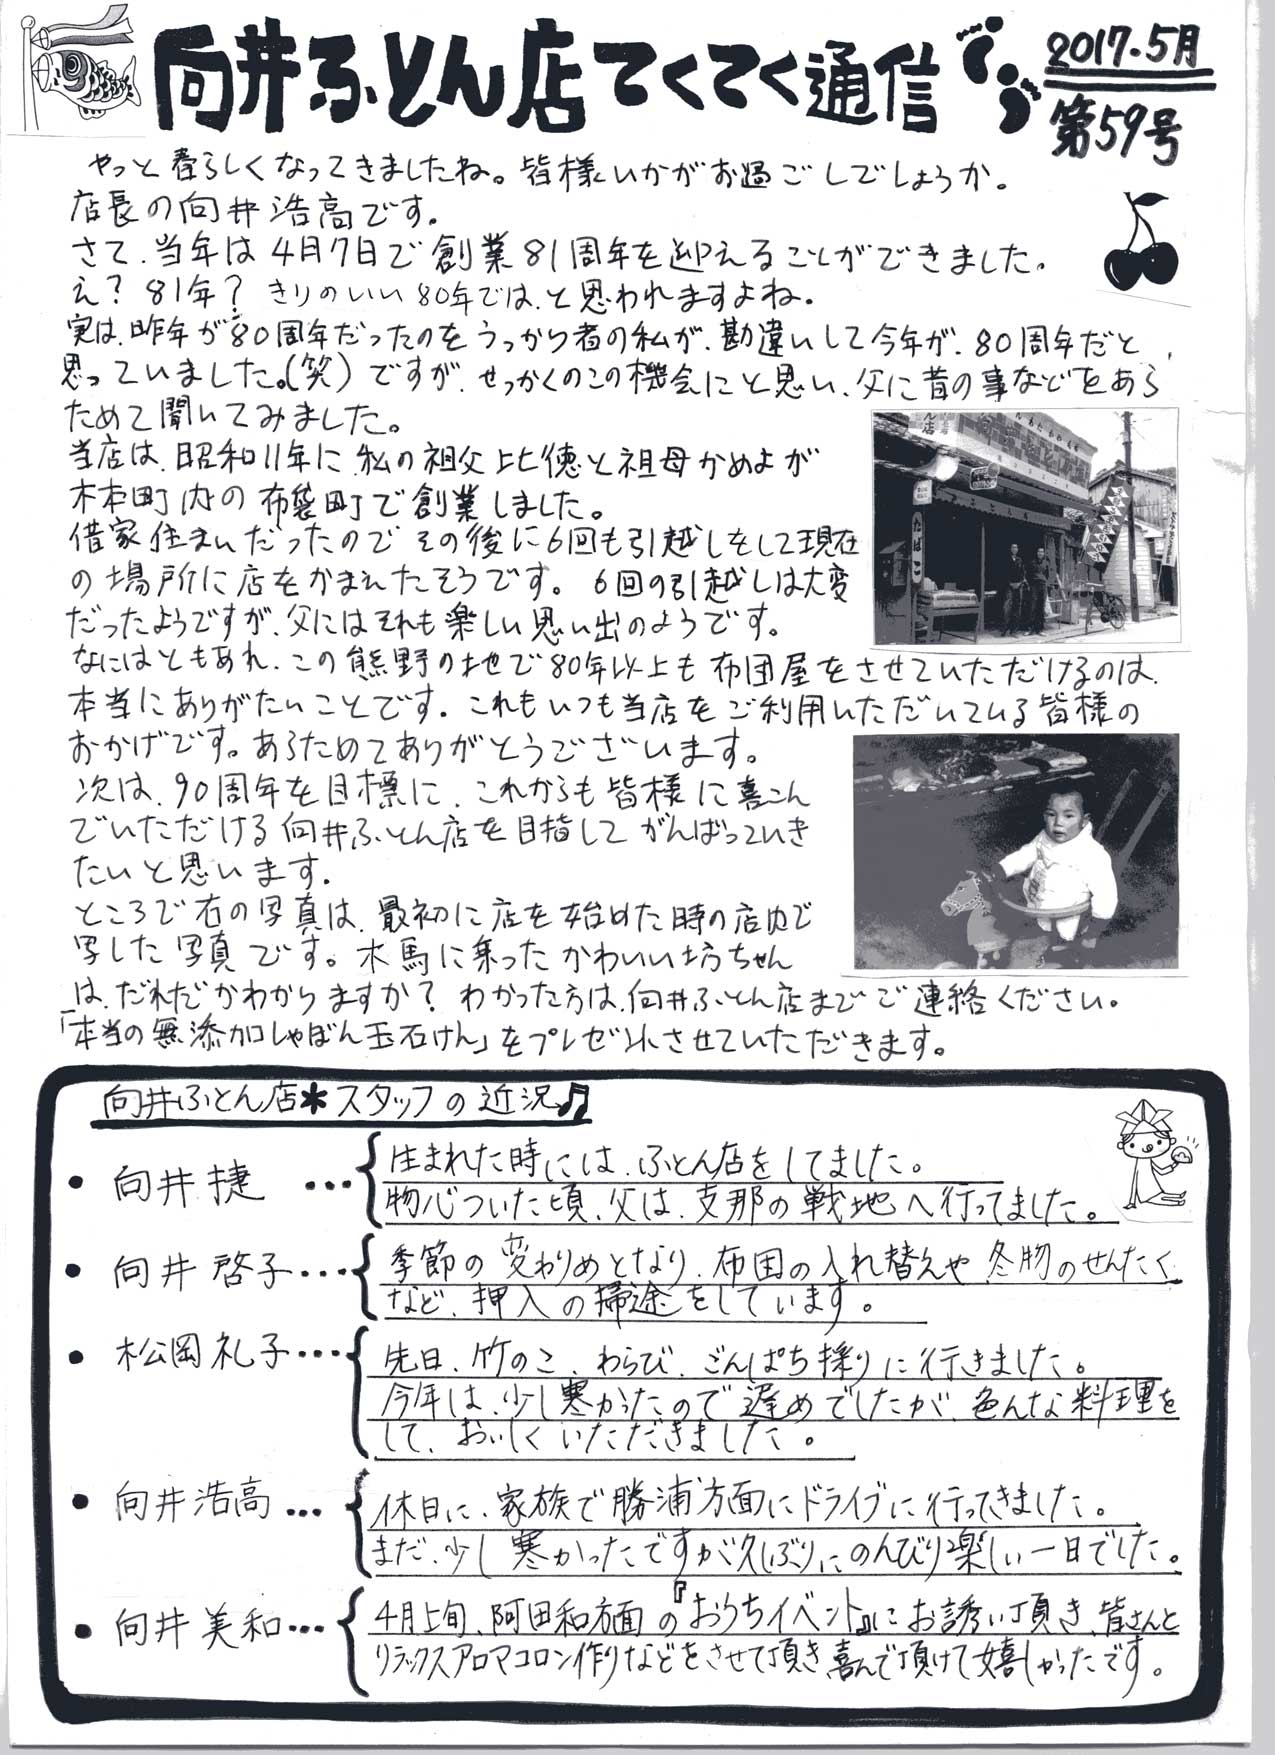 向井ふとん店てくてく通信
2017.5月
第59号
やっと春らしくなってきましたね。皆様いかがお過ごしでしょうか。
店長の向井浩高です。
さて、当年は4月7日で創業81周年を迎えることができました。
え?81年? きりのいい80年では、と思われますよね。
実は、昨年が80周年だったのをうっかり者の私が、勘違いして今年が、80周年だと
思っていました。(笑)ですが、せっかくのこの機会にと思い、父に昔の事などをあら
ためて聞いてみました。
当店は、昭和11年に、私の祖父比徳と祖母かめよが
木本町内の布袋町で創業しました。
借家住まいだったのでその後に6回も引越しをして現在
の場所に店をかまえたそうです。6回の引越しは大変
だったようですが、父にはそれも楽しい思い出のようです。
なにはともあれ、この熊野の地で80年以上も布団屋をさせていただけるのは、
本当にありがたいことです。これもいつも当店をご利用いただいている皆様の
おかげです。あらためてありがとうございます。
次は、90周年を目標に、これからも皆様に喜こん
でいただける向井ふとん店を目指してがんばっていき
たいと思います。
ところで右の写真は、最初に店を始めた時の店内で
写した写真です。木馬に乗ったかわいい坊ちゃん
は、だれだかわかりますか?わかった方は、向井ふとん店までご連絡ください。
「本当の無添加しゃぼん玉石けん」をプレゼントさせていただきます。
たばこ
向井ふとん店*スタッフの近況♫
・向井 捷 …
生まれた時には、ふとん店をしてました。
物心ついた頃、父は、支那の戦地へ行ってました。
・向井 啓子…
季節の変わりめとなり、布団の入れ替えや、冬物のせんたく
など、押入の掃途をしています。
・松岡礼子…
先日、竹のこ、わらび、ごんぱち採りに行きました。
今年は、少し寒かったので遅めでしたが、色んな料理を
して、おいしくいただきました。
・向井浩高…
休日に、家族で勝浦方面にドライブに行ってきました。
まだ、少し寒かったですが久しぶりにのんびり楽しい一日でした。
・向井 美和…
4月上旬、阿田和方面の『おうちイベント』にお誘い頂き、皆さんと
リラックスアロマコロン作りなどをさせて頂き、喜んで頂けて嬉しかったです。